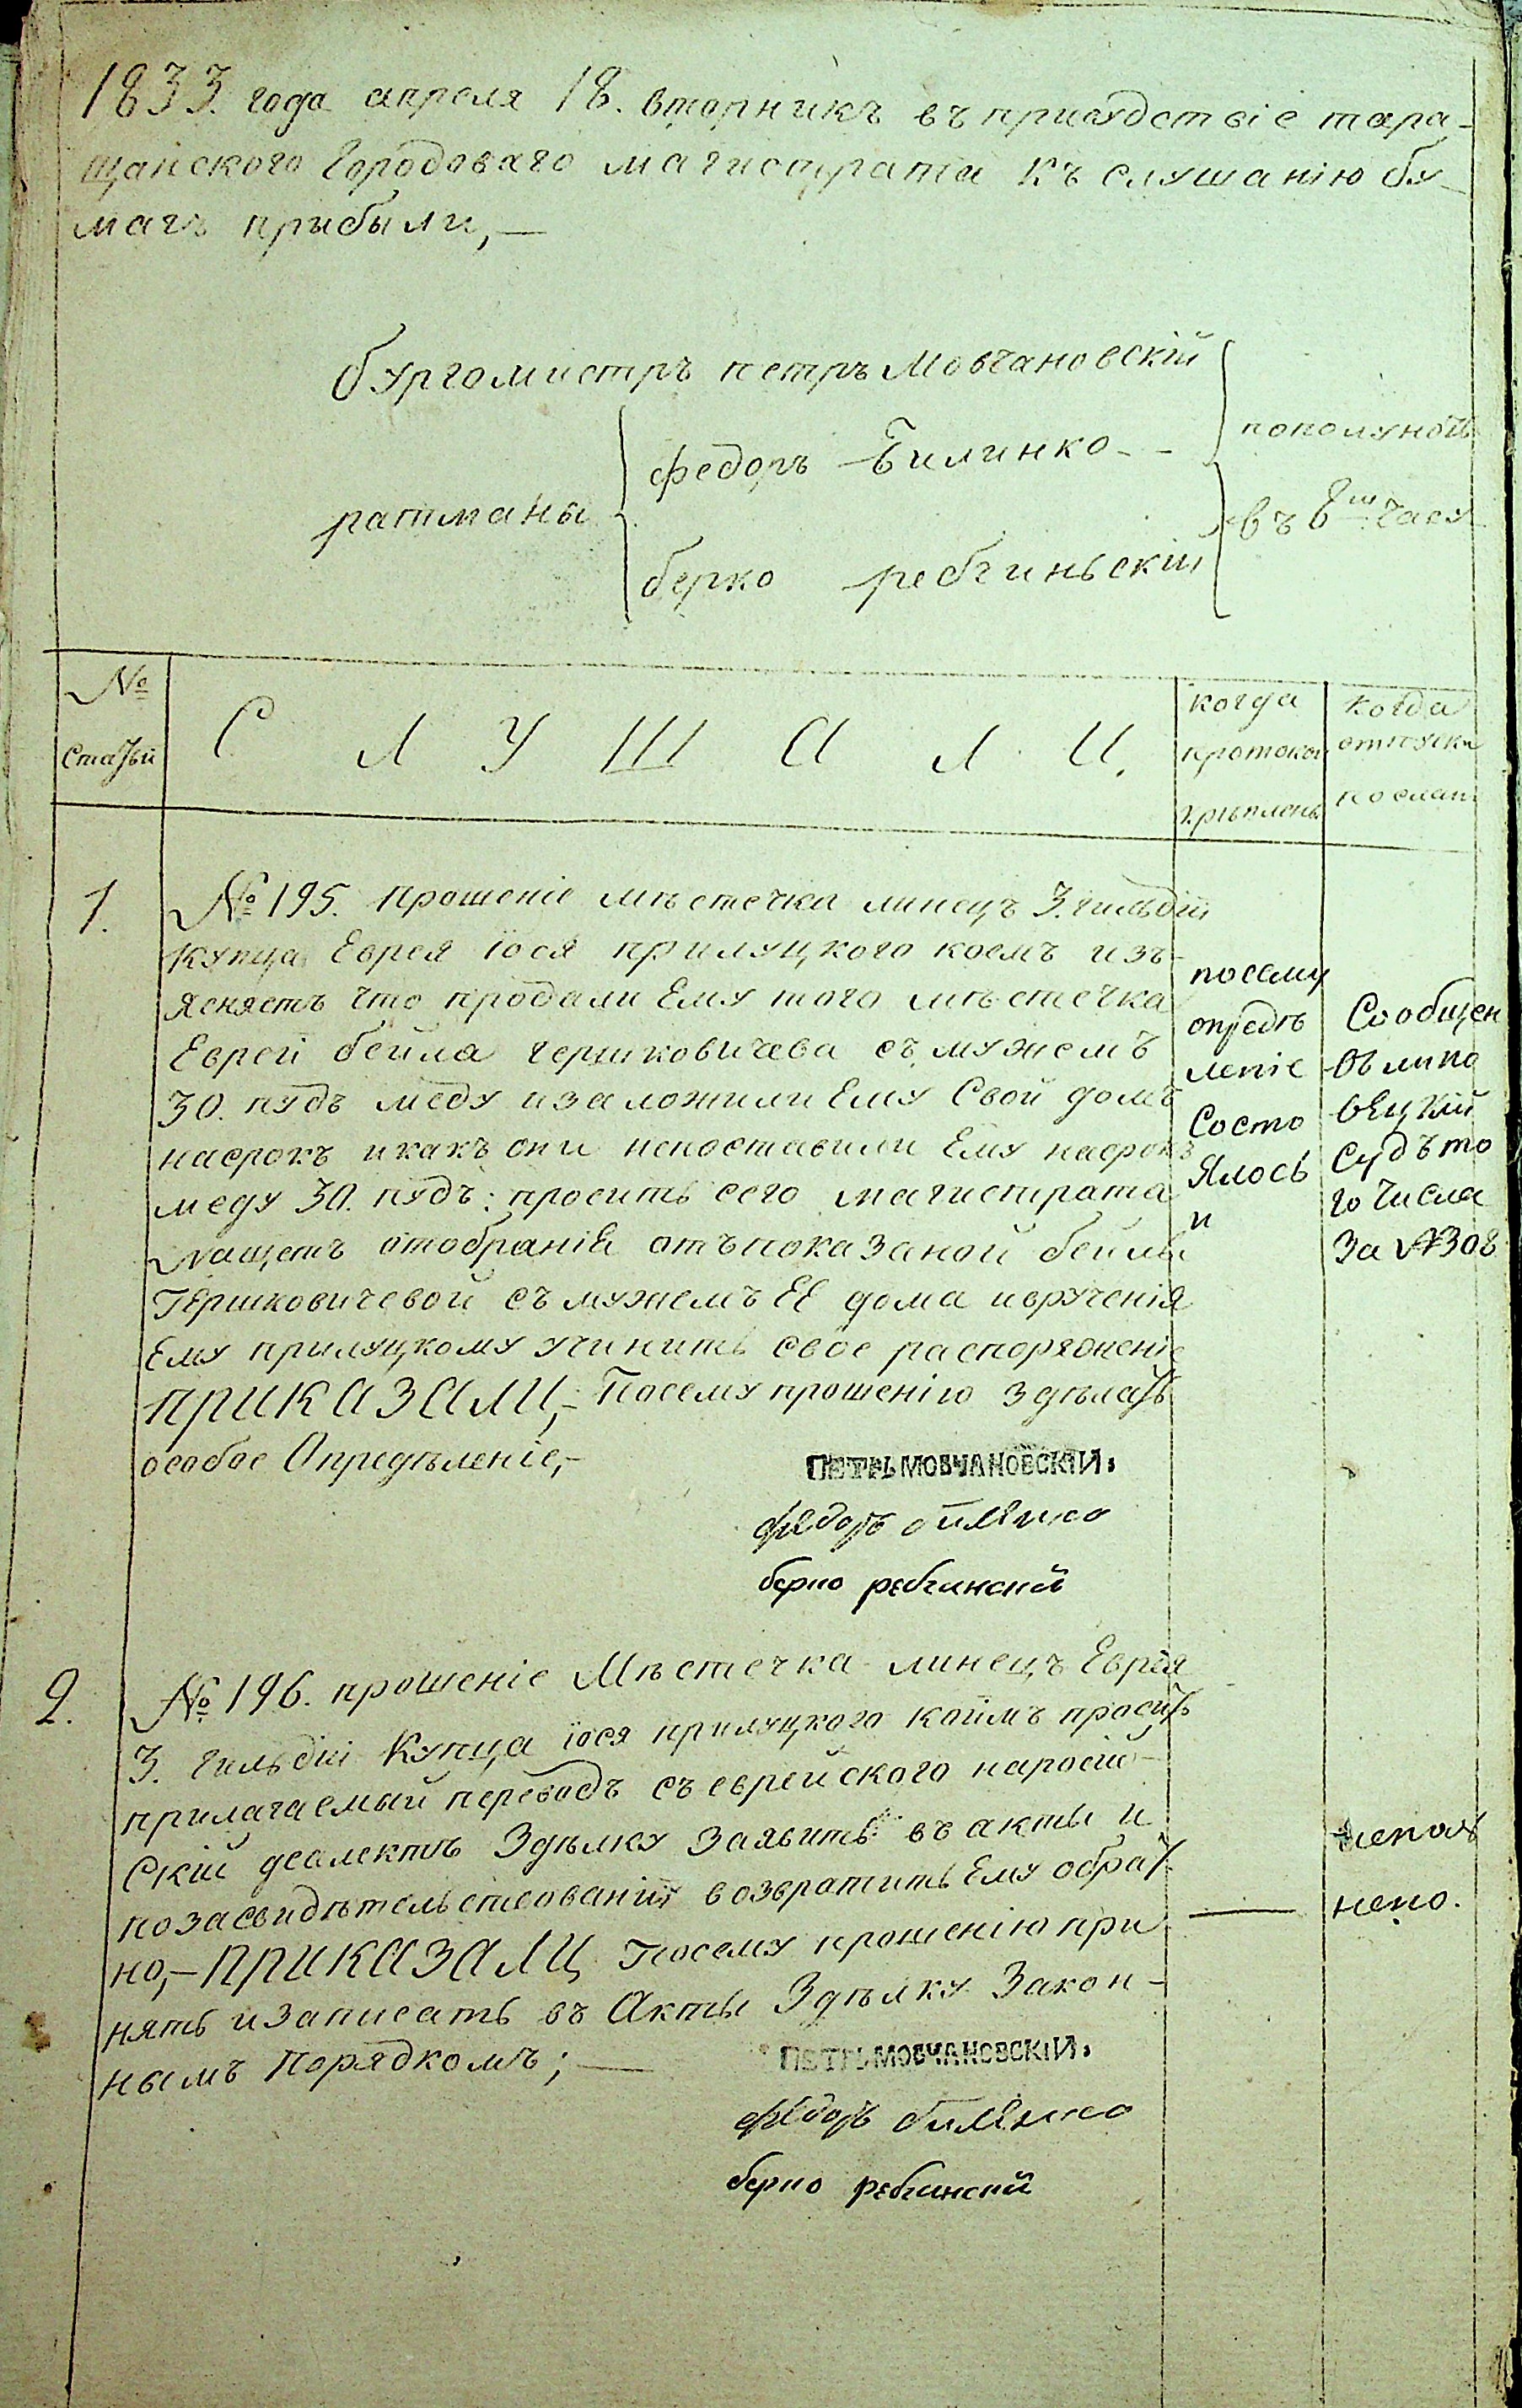 1833. года апреля 18. вторникъ въ присудствіе тара-
щанского Городоваго магистрата къ слушанію бу-
магъ прибыли,—
бургомистръ петръ Мовчановскій
ратманы
федоръ Билинко --
берко ребчиньскій
пополуноч
въ 8ш часу
№ статьи
С Л У Ш А Л И.
когда протокол
крѣпленъ
когда отпускъ
посланъ
1.
№ 195. прошеніе мѣстечка линецъ 3. гильдіи
купца Еврея іося прилуцкого коемъ изъ-
ясняетъ что продали Ему того мѣстечка
Еврей бейла гершковичева съ мужемъ
30. пудъ меду изаложили Ему Свой домъ
насрокъ икакъ они непоставили Ему насрокъ
меду 30. пудъ: проситъ сего магистрата
нащетъ отобранія отъпоказаной бейлы
Гершковичевой съ мужемъ ЕЕ дома ивручения
Ему прилуцкому учинить свое распоряженіе
ПРИКАЗАЛИ,- Посему прошенію здѣлать
особое Опредѣленіе,-
посему
опредѣ
леніе
Состо
ялось
и
Сообщен
въ липо
вецкій
Судъ то
го числа
За №308
ПЕТРЪ МОВЧАНОВСКІЙ.
федоръ билинко
берко ребчинский
2.
№ 196. прошеніе Мѣстечка линецъ Еврея
3. гильдіи Купца іося прилуцкого коимъ проситъ
прилагаемый переводъ съ еврейского наросій-
Скій деалектъ Здѣлку заявить въ акты и
позасвидѣтельствованіи возвратить Ему обрат
но,- ПРИКАЗАЛИ Посему прошенію при
нять изаписать въ Акты Здѣлку Закон-
нымъ Порядкомъ;—
непол
нено.
ПЕТРЪ МОВЧАНОВСКІЙ.
федоръ билинко
берко ребчинский